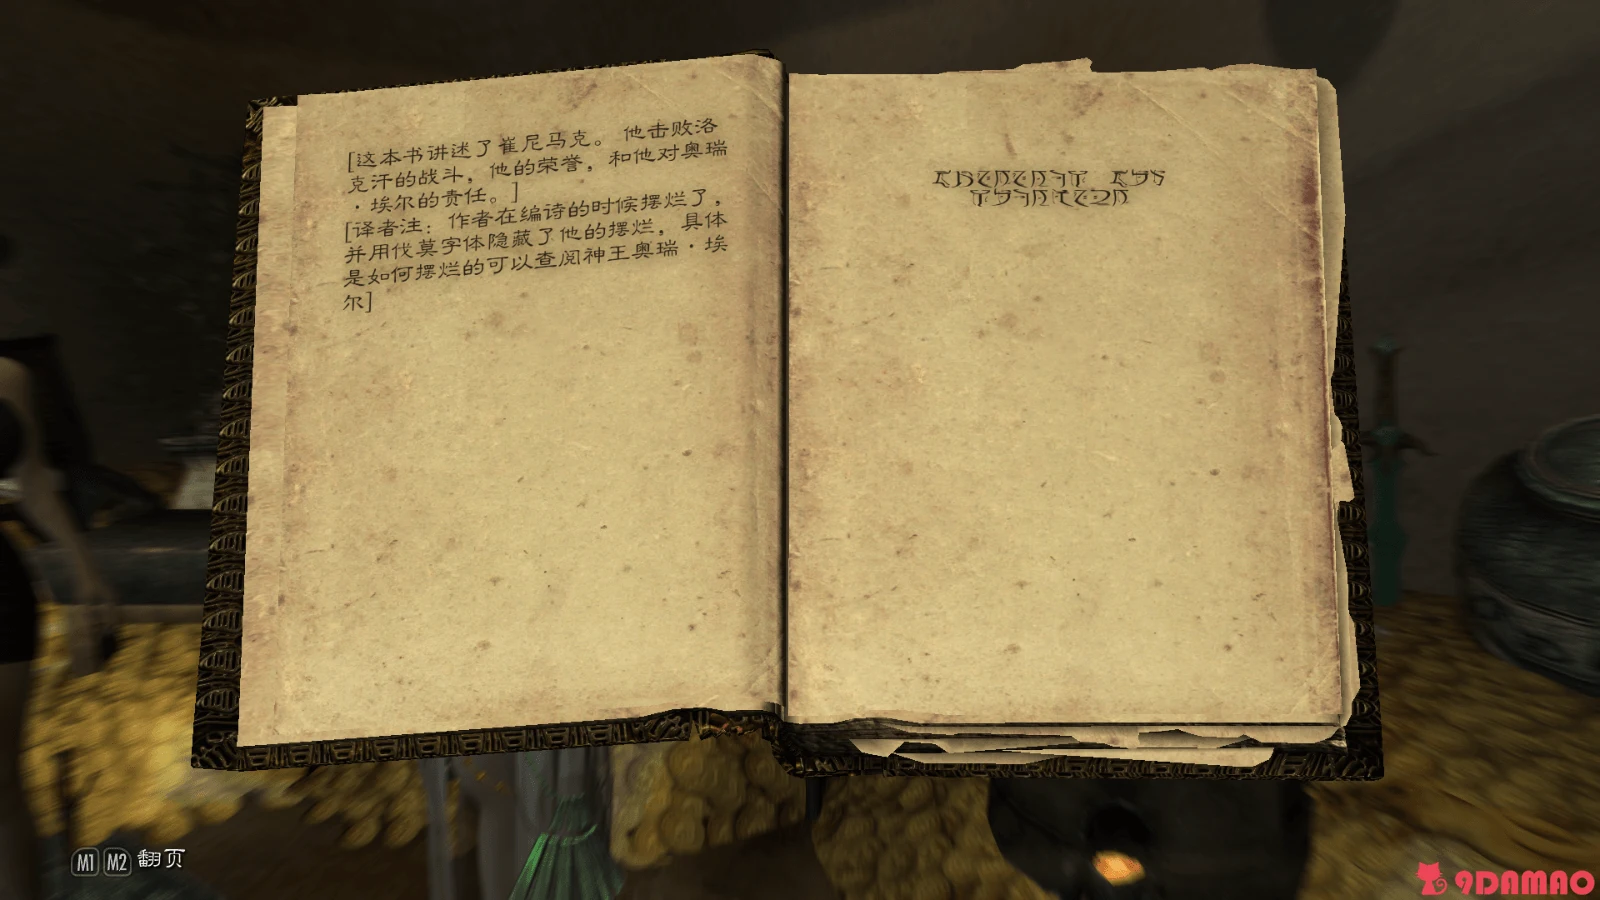 [这本书讲述了崔尼马克。 他击败洛
克汗的战斗，他的荣誉，和他对奥瑞
·埃尔的责任。]
[译者注：作者在编诗的时候摆烂了，
并用伐莫字体隐藏了他的摆烂，具体
是如何摆烂的可以查阅神王奥瑞·埃
尔]
M1 M2 翻页
9DAMAO